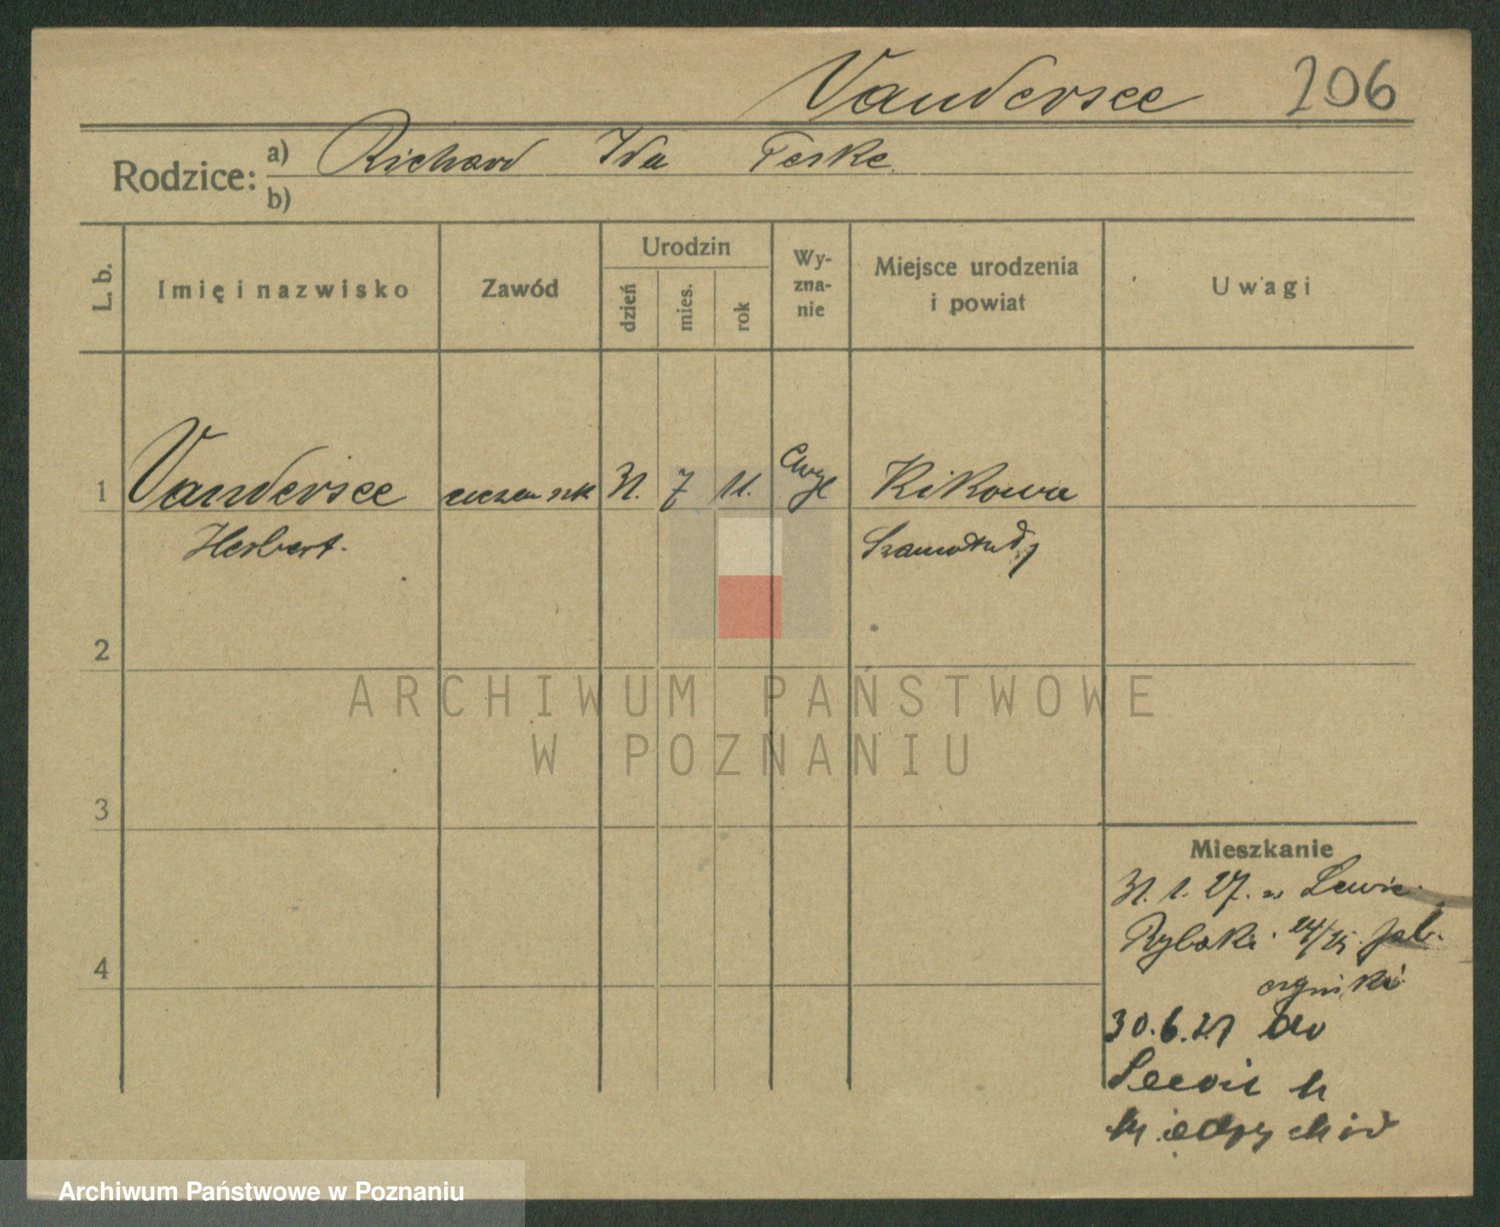 Vandersee 206
Rodzice: a) Richard Ida Teske
b)
L. b. Imię i nazwisko Zawód Urodzin dzień mies. rok Wy-zna-nie Miejsce urodzenia i powiat Uwagi
1 Vandersee 31. 7 11. Kikowa
Herbert. Szamotuły
2
ARCHIWUM PAŃSTWOWE
W POZNANIU
3
Mieszkanie
31. 1. 27. z Lewic
Rybaki 24/25
4
30.6.27 do
Lewic
Międzychód
Archiwum Państwowe w Poznaniu